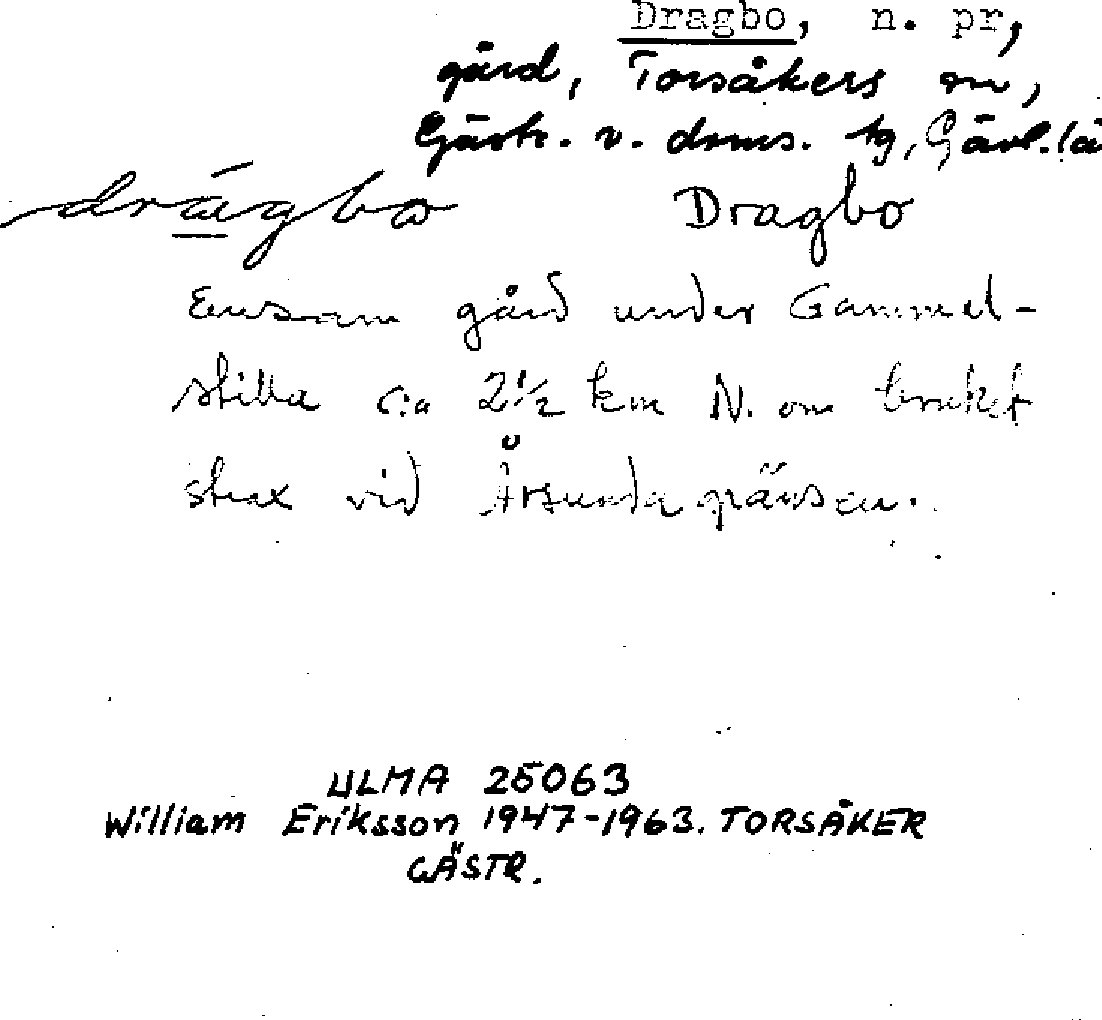 Dragbo, n. pr,
gård, Torsåkers sn,
Gästr. v. doms. tg, Gävl. lä
drágbo Dragbo
Ensam gård under Gammel-
stilla c:a 2 1/2 km N. om bruket
strax vid Årsundagränsen.
ULMA 25063
William Eriksson 1947-1963. TORSÅKER
GÄSTR.